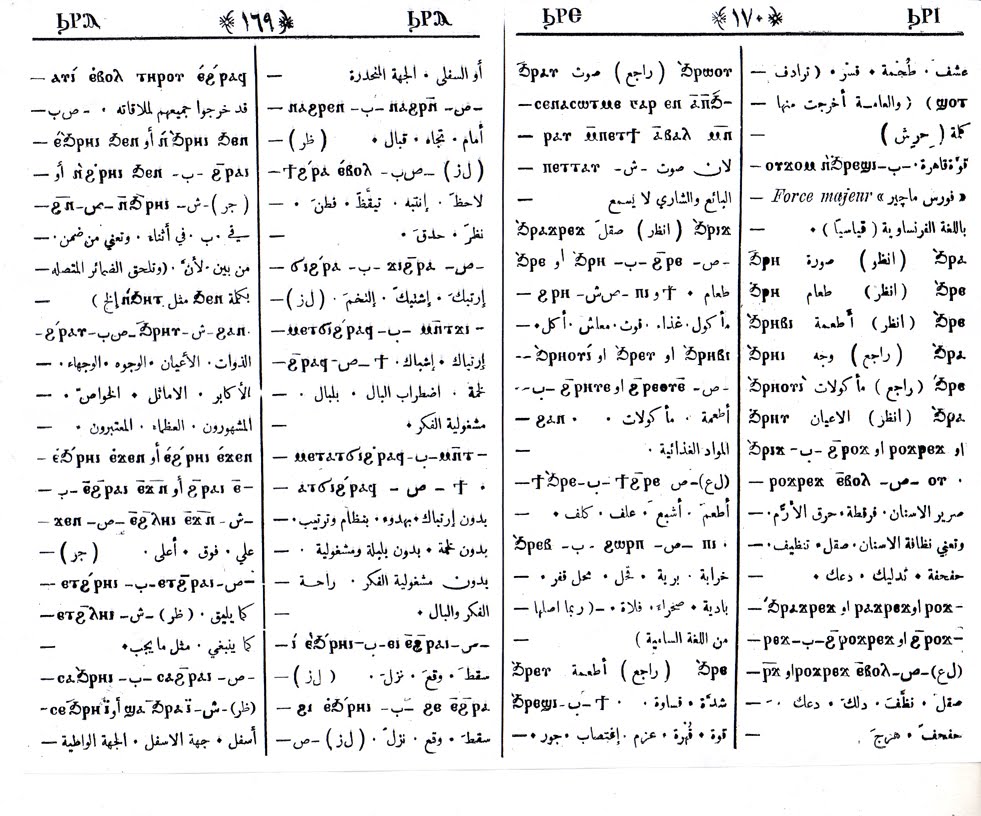 ϦⲢⲀ ١٦٩ ϦⲢⲀ
ⲁⲩⲓ́ ⲉ̀ⲃⲟⲗ ⲧⲏⲣⲟⲩ ⲉ̀ϩ̀ⲣⲁϥ —
قد خرجوا جميعهم لملاقاته · — ص ب —
ⲉ̀ϧⲣⲏⲓ ϧⲉⲛ أو ⲛ̀ϧⲣⲏⲓ ϧⲉⲛ —
ⲛ̀ϩ̀ⲣⲏⲓ ϧⲉⲛ —ب— ϩⲣⲁⲓ أو —
(جر) —ش— ⲛ̄ϧⲣⲏⲓ —ص— ϩⲛ̄ —
في · ب · في أثناء · وتعني من ضمن · —
من بين · لأن · (وتلحق الضمائر المتصله
بكلمة ϧⲉⲛ مثل ⲛ̀ϧⲏⲧ إلخ) —
ϩⲣⲁⲧ —ص ب— ϧⲣⲏⲧ —ش— ϩⲁⲛ ·
الذوات · الأعيان · الوجوه · الوجهاء · —
الأكابر · الاماثل · الخواص · —
المشهورون · العظماء · المعتبرون · —
ⲉ̀ϧⲣⲏⲓ ⲉϫⲉⲛ أو ⲉ̀ϩ̀ⲣⲏⲓ ⲉϫⲉⲛ
ⲉ̄ϩⲣⲁⲓ ⲉϫⲛ̄ أو ϩⲣⲁⲓ ⲉ̄ — ب —
—ش— ⲉϩⲗⲏⲓ ⲉϫⲛ̄ —ص— ϫⲉⲛ
علي · فوق · أعلى · (جر) —
—ص— ⲉⲧϩⲣⲁⲓ —ب— ⲉⲧϩ̀ⲣⲏⲓ —
كما يليق · (ظر) —ش— ⲉⲧϩⲗⲏⲓ —
كما ينبغي · مثل ما يجب · —
—ص— ⲥⲁϩⲣⲁⲓ —ب— ⲥⲁϧⲣⲏⲓ —
(ظر) —ش— ϣⲁϧⲣⲁⲓ̈ أو ⲥⲉϧⲣⲏⲓ̈ —
أسفل · جهة الاسفل · الجهة الواطية —
أو السفلى · الجهة المنحدرة —
—ص— ⲛⲁϩⲣⲛ̄ —ب— ⲛⲁϩⲣⲉⲛ —
أمام · تجاه · قبال · (ظر) —
(ل ز) —ص ب— ϯϩ̀ⲣⲁ ⲉ̀ⲃⲟⲗ
لاحظ · إنتبه · تيقّظ · فطن · —
نظر · حدق · —
—ص— ϭⲓϩⲣⲁ —ب— ϫⲓϩⲣⲁ
إرتبك · إشتبك · إلتخم · (ل ز) —
ⲙⲉⲧϭⲓϩ̀ⲣⲁϥ —ب— ⲙⲛ̄ⲧϫⲓ —
إرتباك · إشباك · ϯ —ص— ϩⲣⲁϥ
لخمة · اضطراب البال · بلبال · —
مشغولية الفكر · —
ⲙⲉⲧⲁⲧϭⲓϩ̀ⲣⲁϥ —ب— ⲙⲛ̄ⲧ —
ⲁⲧϭⲓϩ̀ⲣⲁϥ —ص— ϯ · —
بدون إرتباك · بهدوء · بنظام وترتيب · —
بدون لخمة · بدون بلبلة ومشغولية · —
بدون مشغولية الفكر · راحة —
الفكر والبال · —
—ص— ⲉⲓ ⲉϩⲣⲁⲓ —ب— ⲓ́ ⲉ̀ϧⲣⲏⲓ —
سقط · وقع · نزل · (ل ز) —
ϩⲓ ⲉ̀ϧⲣⲏⲓ —ب— ϩⲉ ⲉ̄ϩⲣⲁ —
سقط · وقع · نزل · (ل ز) —ص—
ϦⲢⲈ ١٧٠ ϦⲢⲒ
ϧⲣⲁⲩ صوت (راجع) ϧⲣⲱⲟⲩ
ⲥⲉⲛⲁⲥⲱⲧⲙⲉ ⲅⲁⲣ ⲉⲛ ⲁⲡϧ —
ⲣⲁⲩ ⲙ̄ⲡⲉⲧϯ ⲁ̄ⲃⲁⲗ ⲙⲛ̄ —
لان صوت —ش— ⲡⲉⲧⲧⲁⲩ —
البائع والشاري لا يسمع —
ϧⲣⲁϫⲣⲉϫ صقل (انظر) ϧⲣⲓϫ
ϧⲣⲉ او ϧⲣⲏ —ب— ϩⲣⲉ —ص—
طعام · ϯ و ⲡⲓ —ص ش— ϩⲣⲏ —
مأكول · غذاء · قوت · معاش · أكل · —
ϧⲣⲏⲟⲩⲓ́ او ϧⲣⲉⲩ او ϧⲣⲏⲃⲓ —
—ص— ϩⲣⲉⲟⲩⲉ̄ او ϩⲣⲏⲧⲉ —ب—
أطعمة · مأكولات · ϩⲁⲛ · —
المواد الغذائية · —
(ل ع) —ص— ϯϩⲣⲉ —ب— ϯϧⲣⲉ —
أطعم · أشبع · علف · كلف · —
ϧⲣⲉⲃ —ب— ϩⲱⲣⲡ —ص— ⲡⲓ ·
خرابة · برية · قحل · محل قفر · —
بادية · صحراء · فلاة · — (ربما اصلها —
من اللغة السامية) —
ϧⲣⲉⲩ أطعمة (راجع) ϧⲣⲉ
ϧⲣⲉϣⲓ —ب— ϯ · شدّة · قساوة ·
قوة · قُهرة · عزم · إغتصاب · جور · —
عشف · طُجمة · قسر · (ترادف —
ϣⲟⲧ) (والعامــة أخرجت منها —
كلمة (حرش) —
قوّة قاهرة · —ب— ⲟⲩϫⲟⲙ ⲛ̀ϧⲣⲉϣⲓ —
Force majeur « فورس ماجير »
باللغة الفرنساوية (قياسياً) · —
ϧⲣⲏ صورة (انظر) ϧⲣⲁ
ϧⲣⲏ طعام (انظر) ϧⲣⲉ
ϧⲣⲏⲃⲓ أطعمة (انظر) ϧⲣⲉ
ϧⲣⲏⲓ وجه (راجع) ϧⲣⲁ
ϧⲣⲏⲟⲩⲓ́ مأكولات (راجع) ϧⲣⲉ
ϧⲣⲏⲧ الاعيان (انظر) ϧⲣⲁ
ϧⲣⲓϫ —ب— ϩⲣⲟϫ او ⲣⲟϫⲣⲉϫ او
ⲣⲟϫⲣⲉϫ ⲉ̄ⲃⲟⲗ —ص— ⲟⲩ · —
صرير الاسنان · فرقطة · حرق الأرّم · —
وتعني نظافة الاسنان · صقل · تنظيف · —
حفحفة · تدليك · دعك · —
ϧⲣⲁϫⲣⲉϫ او ⲣⲁϫⲣⲉϫ او ⲣⲟϫ —
ⲣⲉϫ —ب— ϩⲣⲟϫⲣⲉϫ او ϩⲣⲟϫ —
(ل ع) —ص— ⲣⲟϫⲣⲉϫ ⲉ̄ⲃⲟⲗ او ⲣϫ̄
صقل · نظّف · دلك · دعك · —
حفحف · هزج · —